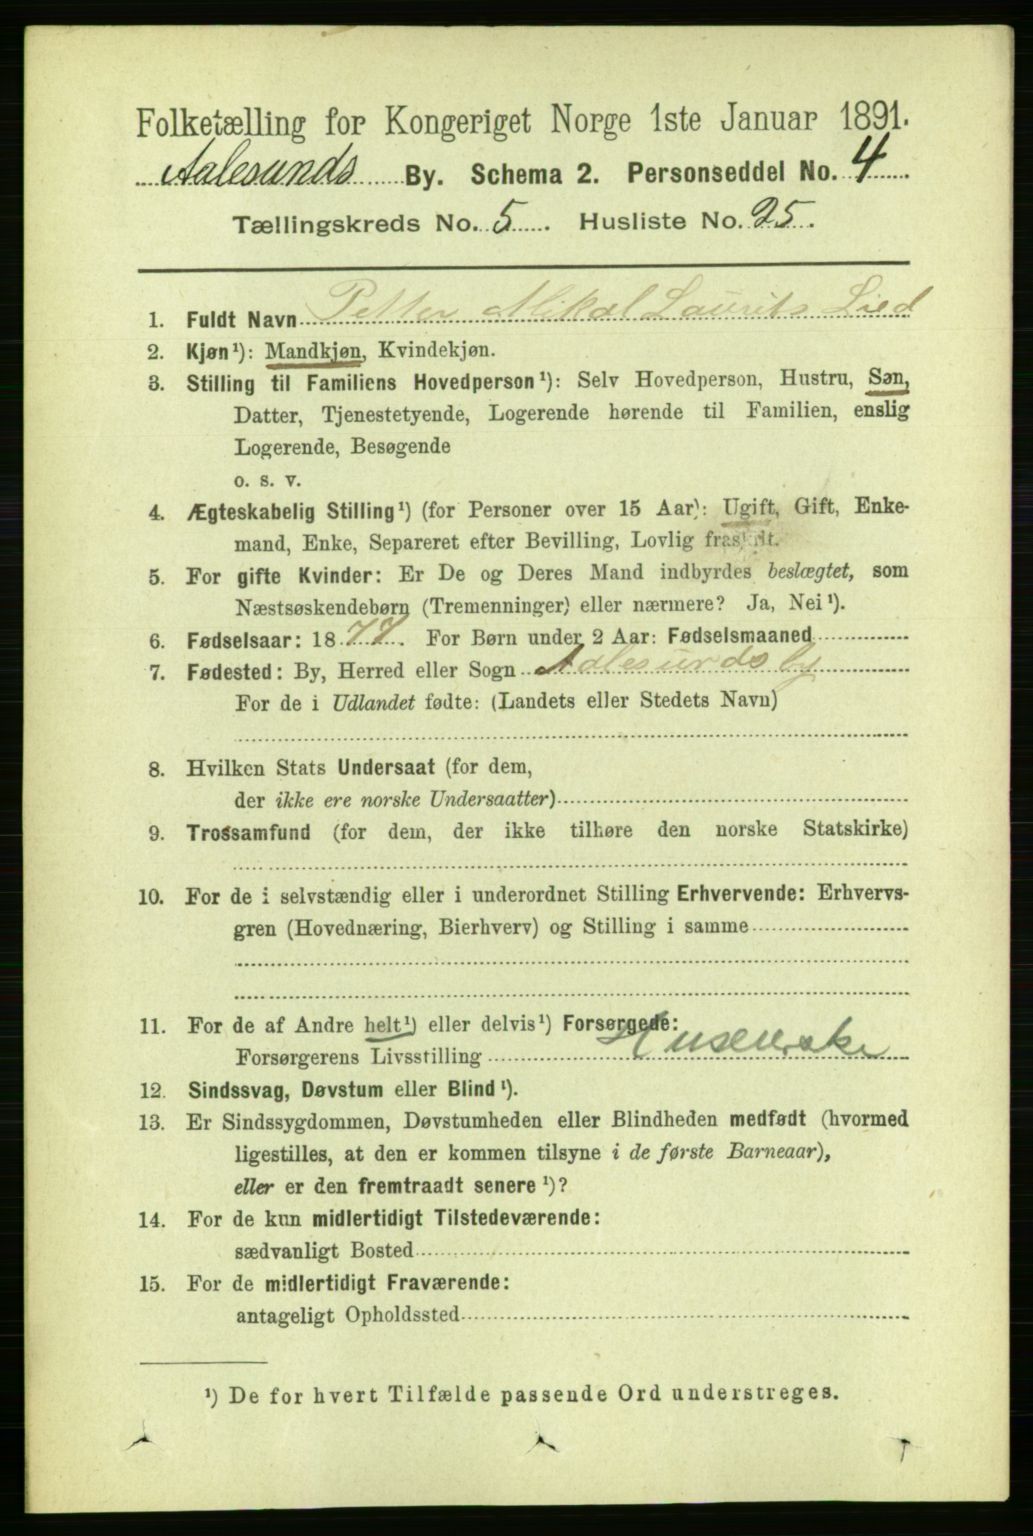 Folketælling for Kongeriget Norge 1ste Januar 1891.
Aalesunds By. Schema 2. Personseddel No. 4
Tællingskreds No. 5. Husliste No. 25.
1. Fuldt Navn Petter Mikal Laurits Lied
2. Kjøn¹): Mandkjøn, Kvindekjøn.
3. Stilling til Familiens Hovedperson¹): Selv Hovedperson, Hustru, Søn,
Datter, Tjenestetyende, Logerende hørende til Familien, enslig
Logerende, Besøgende
o. s. v.
4. Ægteskabelig Stilling¹) (for Personer over 15 Aar): Ugift, Gift, Enke-
mand, Enke, Separeret efter Bevilling, Lovlig fraskilt.
5. For gifte Kvinder: Er De og Deres Mand indbyrdes beslægtet, som
Næstsøskendebørn (Tremenninger) eller nærmere? Ja, Nei¹).
6. Fødselsaar: 1877. For Børn under 2 Aar: Fødselsmaaned
7. Fødested: By, Herred eller Sogn Aalesunds by
For de i Udlandet fødte: (Landets eller Stedets Navn)
8. Hvilken Stats Undersaat (for dem,
der ikke ere norske Undersaatter)
9. Trossamfund (for dem, der ikke tilhøre den norske Statskirke)
10. For de i selvstændig eller i underordnet Stilling Erhvervende: Erhvervs-
gren (Hovednæring, Bierhverv) og Stilling i samme
11. For de af Andre helt¹) eller delvis¹) Forsørgede:
Forsørgerens Livsstilling
12. Sindssvag, Døvstum eller Blind¹).
13. Er Sindssygdommen, Døvstumheden eller Blindheden medfødt (hvormed
ligestilles, at den er kommen tilsyne i de første Barneaar),
eller er den fremtraadt senere¹)?
14. For de kun midlertidigt Tilstedeværende:
sædvanligt Bosted
15. For de midlertidigt Fraværende:
antageligt Opholdssted
¹) De for hvert Tilfælde passende Ord understreges.